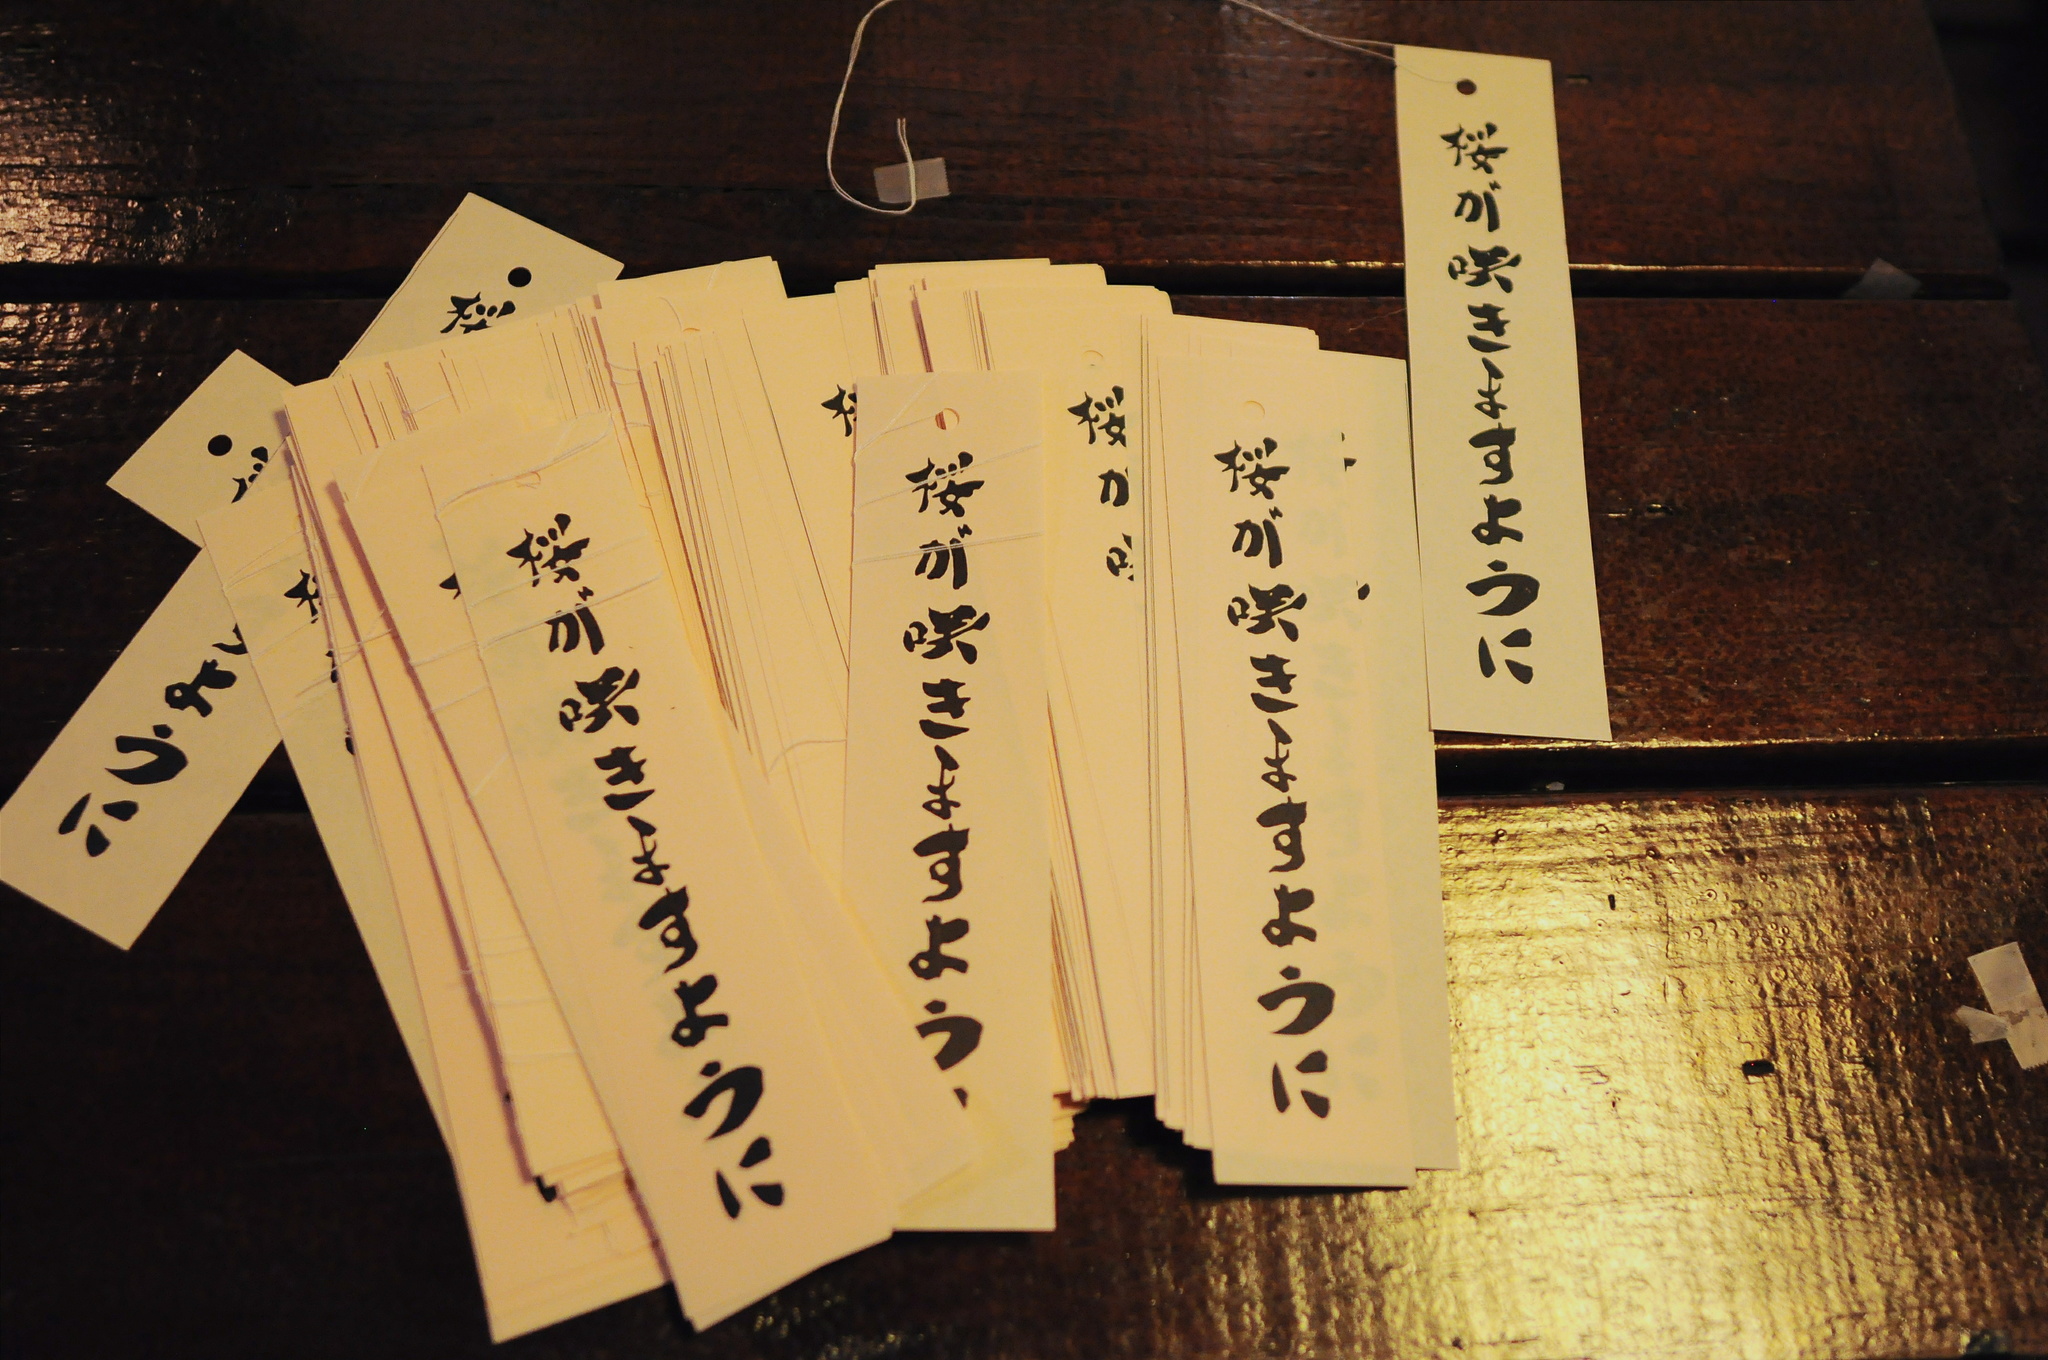 桜
桜が咲きますように
う
ように
桜
桜
桜が咲
桜が咲きますように
桜が咲きますよう
桜が咲きますように